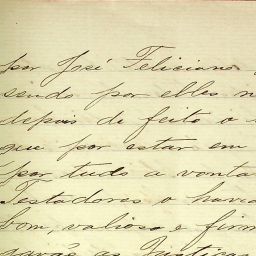 por José Feliciano
sendo por elles
depois de feito o
que por estar em
por tudo a vonta
Testadores o havia
bom, valioso e firm
as Justiças